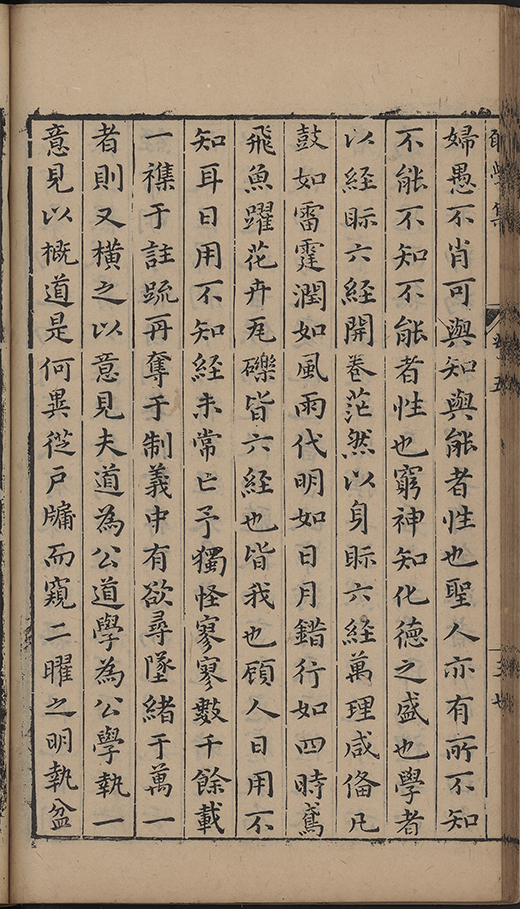 婦愚不肖可與知與能者性也聖人亦有所不知
不能不知不能者性也窮神知化德之盛也學者
以經眎六經開卷茫然以身眎六經萬理咸俻凡
鼓如雷霆潤如風雨代明如日月錯行如四時鳶
飛魚躍花卉瓦礫皆六經也皆我也顧人日用不
知耳日用不知經未常亡予獨怪寥寥數千餘載
一襍于註䟽再奪于制義中有欲尋墜緒于萬一
者則又橫之以意見夫道為公道學為公學執一
意見以概道是何異從戶牖而窺二曜之明執盆